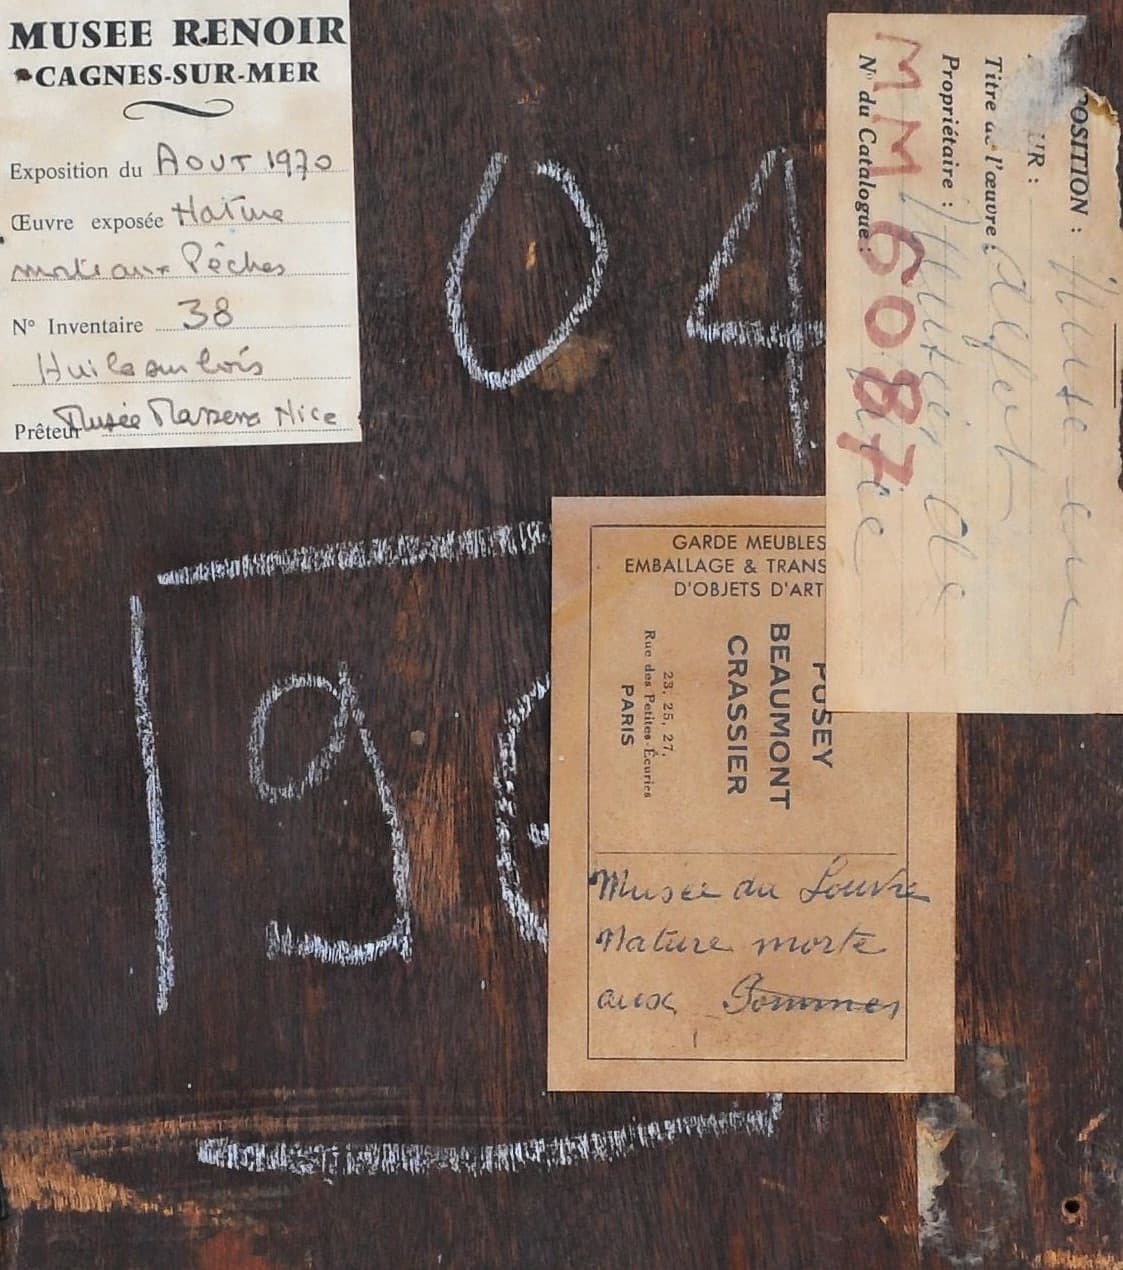 MUSEE RENOIR
CAGNES-SUR-MER
Exposition du AOUT 1970
Œuvre exposée Nature
morte aux Pêches
N° Inventaire 38
Huile sur bois
Prêteur Musée Massena Nice
04
9
GARDE MEUBLES
EMBALLAGE & TRANS
D'OBJETS D'ART
PUSEY
BEAUMONT
CRASSIER
23, 25, 27,
Rue des Petites-Écuries
PARIS
Musée du Louvre
Nature morte
aux Pommes
POSITION :
UR :
Titre de l'œuvre :
Propriétaire :
N° du Catalogue :
MM 6087